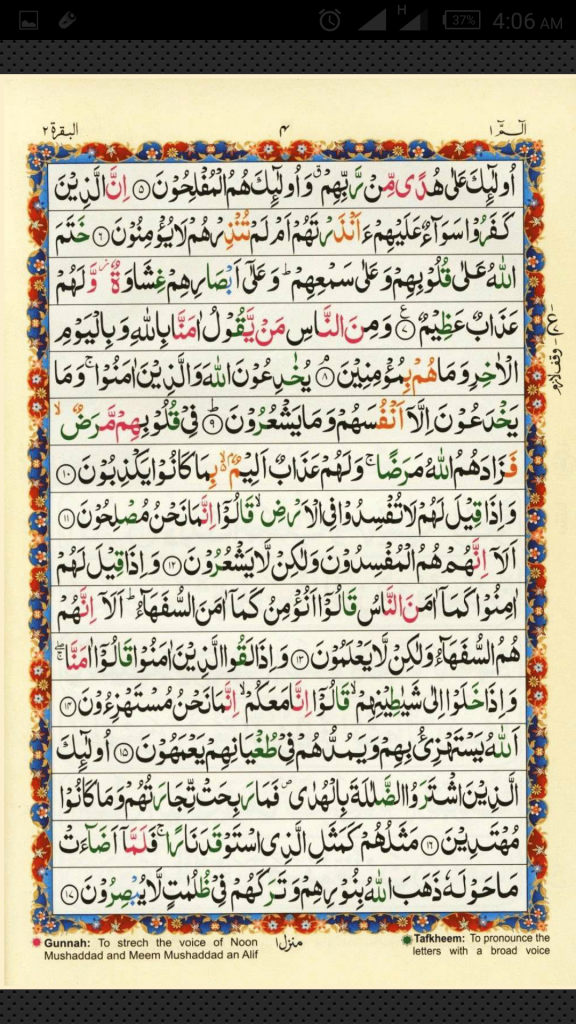 H 37% 4:06 AM
الٓمّٓ ١ ٤ البقرة ٢
اُولٰٓئِكَ عَلٰى هُدًى مِّنْ رَّبِّهِمْ ۗ وَاُولٰٓئِكَ هُمُ الْمُفْلِحُوْنَ ۝٥ اِنَّ الَّذِيْنَ
كَفَرُوْا سَوَآءٌ عَلَيْهِمْ ءَاَنْذَرْتَهُمْ اَمْ لَمْ تُنْذِرْهُمْ لَا يُؤْمِنُوْنَ ۝٦ خَتَمَ
اللّٰهُ عَلٰى قُلُوْبِهِمْ وَعَلٰى سَمْعِهِمْ ؕ وَعَلٰٓى اَبْصَارِهِمْ غِشَاوَةٌ ۫ وَّلَهُمْ
عَذَابٌ عَظِيْمٌ ۝٧ وَمِنَ النَّاسِ مَنْ يَّقُوْلُ اٰمَنَّا بِاللّٰهِ وَبِالْيَوْمِ
الْاٰخِرِ وَمَا هُمْ بِمُؤْمِنِيْنَ ۝٨ يُخٰدِعُوْنَ اللّٰهَ وَالَّذِيْنَ اٰمَنُوْا ۚ وَمَا
يَخْدَعُوْنَ اِلَّآ اَنْفُسَهُمْ وَمَا يَشْعُرُوْنَ ؕ۝٩ فِيْ قُلُوْبِهِمْ مَّرَضٌ ۙ
فَزَادَهُمُ اللّٰهُ مَرَضًا ۚ وَلَهُمْ عَذَابٌ اَلِيْمٌۢ ۙ بِمَا كَانُوْا يَكْذِبُوْنَ ۝١٠
وَاِذَا قِيْلَ لَهُمْ لَا تُفْسِدُوْا فِى الْاَرْضِ ۙ قَالُوْٓا اِنَّمَا نَحْنُ مُصْلِحُوْنَ ۝١١
اَلَآ اِنَّهُمْ هُمُ الْمُفْسِدُوْنَ وَلٰكِنْ لَّا يَشْعُرُوْنَ ۝١٢ وَاِذَا قِيْلَ لَهُمْ
اٰمِنُوْا كَمَآ اٰمَنَ النَّاسُ قَالُوْٓا اَنُؤْمِنُ كَمَآ اٰمَنَ السُّفَهَآءُ ؕ اَلَآ اِنَّهُمْ
هُمُ السُّفَهَآءُ وَلٰكِنْ لَّا يَعْلَمُوْنَ ۝١٣ وَاِذَا لَقُوا الَّذِيْنَ اٰمَنُوْا قَالُوْٓا اٰمَنَّا ۖۚ
وَاِذَا خَلَوْا اِلٰى شَيٰطِيْنِهِمْ ۙ قَالُوْٓا اِنَّا مَعَكُمْ ۙ اِنَّمَا نَحْنُ مُسْتَهْزِءُوْنَ ۝١٤
اَللّٰهُ يَسْتَهْزِئُ بِهِمْ وَيَمُدُّهُمْ فِيْ طُغْيَانِهِمْ يَعْمَهُوْنَ ۝١٥ اُولٰٓئِكَ
الَّذِيْنَ اشْتَرَوُا الضَّلٰلَةَ بِالْهُدٰى ۪ فَمَا رَبِحَتْ تِّجَارَتُهُمْ وَمَا كَانُوْا
مُهْتَدِيْنَ ۝١٦ مَثَلُهُمْ كَمَثَلِ الَّذِى اسْتَوْقَدَ نَارًا ۚ فَلَمَّآ اَضَآءَتْ
مَا حَوْلَهٗ ذَهَبَ اللّٰهُ بِنُوْرِهِمْ وَتَرَكَهُمْ فِيْ ظُلُمٰتٍ لَّا يُبْصِرُوْنَ ۝١٧
وقف لازم
Gunnah: To strech the voice of Noon
Mushaddad and Meem Mushaddad an Alif
منزل ١
Tafkheem: To pronounce the
letters with a broad voice